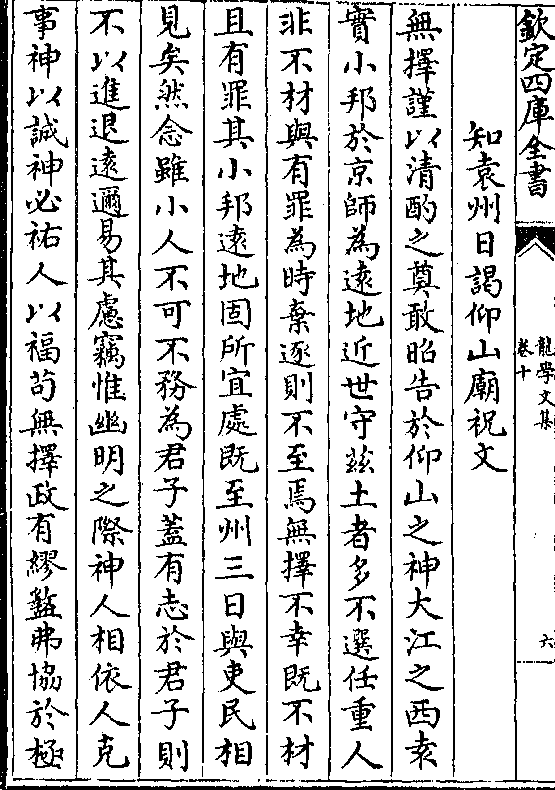 欽定四庫全書
龍學文集
卷十
六
知袁州日謁仰山廟祝文
無擇謹以清酌之奠敢昭告於仰山之神大江之西袁
實小邦於京師為遠地近世守兹土者多不選任重人
非不材與有罪為時棄逐則不至焉無擇不幸既不材
且有罪其小邦逺地固所宜處既至州三日與吏民相
見矣然念雖小人不可不務為君子葢有志於君子則
不以進退遠邇易其慮竊惟幽明之際神人相依人克
事神以誠神必祐人以福茍無擇政有繆盭弗協於極